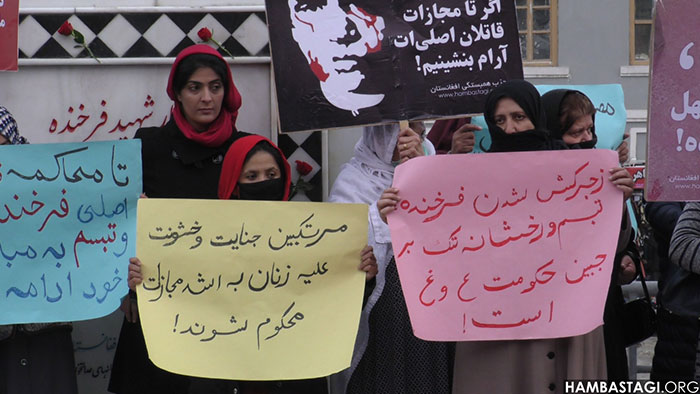 اگر تا مجازات
قاتلان اصلی‌ات
آرام بنشینیم!
حزب همبستگی افغانستان
www.hambastagi.org
شهید فرخنده
تا محاکمه
اصلی فرخنده
و تبسم به مبا
خود ادامه
مرتکبین جنایت و خشونت
علیه زنان به اشد مجازات
محکوم شوند!
زجرکش شدن فرخنده
تبسم و رخشانه تک بر
جبین حکومت ع و غ
است!
HAMBASTAGI.ORG